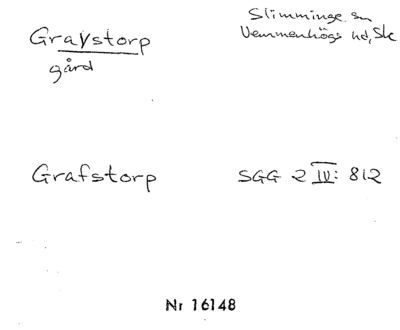 Gravstorp
gård
Slimminge sn
Vemmenhögs hd, Sk
Grafstorp
SGG 2 IV: 812
Nr 16148